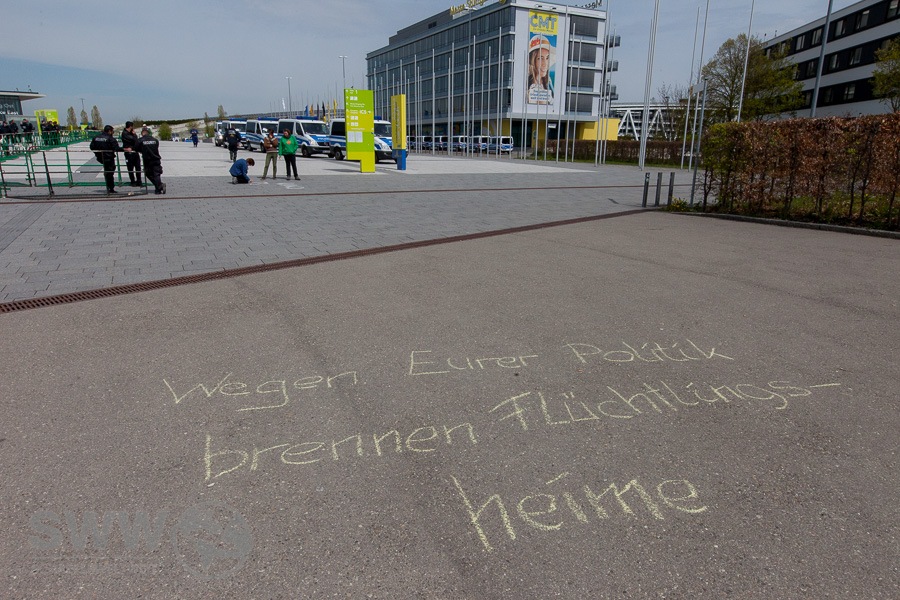 CMT
Wegen Eurer Politik
brennen Flüchtlings-
heime
SWW